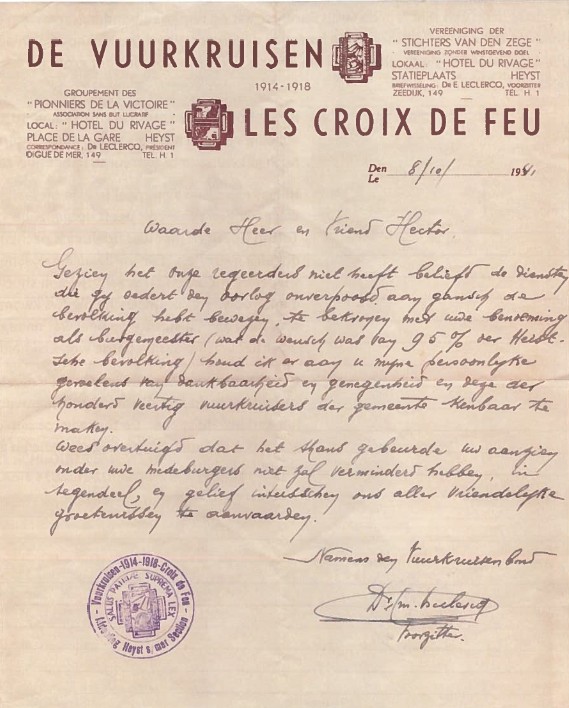 DE VUURKRUISEN
1914-1918
LES CROIX DE FEU
VEREENIGING DER
"STICHTERS VAN DEN ZEGE"
VEREENIGING ZONDER WINSTGEVEND DOEL
LOKAAL: "HOTEL DU RIVAGE"
STATIEPLAATS HEYST
BRIEFWISSELING: DR E. LECLERCQ, VOORZITTER
ZEEDIJK, 149 TEL. H 1
GROUPEMENT DES
"PIONNIERS DE LA VICTOIRE"
ASSOCIATION SANS BUT LUCRATIF
LOCAL: "HOTEL DU RIVAGE"
PLACE DE LA GARE HEYST
CORRESPONDANCE: DR LECLERCQ, PRÉSIDENT
DIGUE DE MER, 149 TEL. H 1
Den
Le 8/10/ 19
Waarde Heer en Vriend Hector.
Gezien het onze regeerders niet heeft beliefd de diensten
die gy sedert den oorlog onverpoosd aan gansch de
bevolking hebt bewezen, te bekronen met uwe benoeming
als burgemeester (wat de wensch was van 95% der Heist-
sche bevolking) houd ik er aan u mijne persoonlyke
gevoelens van dankbaarheid en genegenheid en deze der
honderd veertig vuurkruisers der gemeente kenbaar te
maken.
Wees overtuigd dat het thans gebeurde uw aanzien
onder uwe medeburgers niet zal verminderd hebben, in
tegendeel, en gelief intusschen ons aller vriendelyke
groetenissen te aanvaarden.
Namens den Vuurkruisenbond
Voorzitter.
Vuurkruisen-1914-1918-Croix de Feu
SALUS PATRIAE SUPREMA LEX
Afdeeling Heyst s/mer Section